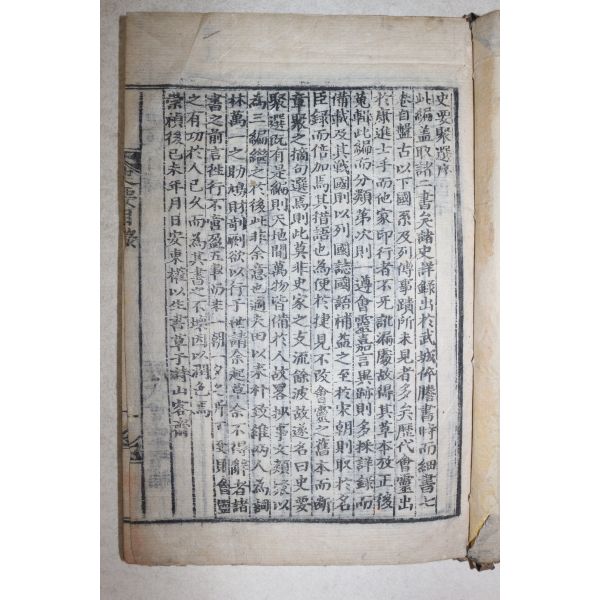 史要聚選序
此編蓋取諸二書矣諸史詳錄出於武城倅謄書時而細書七
卷自盤古以下國系及列傳事蹟所未見者多矣歷代會靈出
於康進士手而他家印行者不死訛漏處故得其草本放正後
蒐輯此編而分類第次則遵會靈嘉言異跡則多採詳錄而
備載及其戰國則以列國誌國語補益之至於宋朝則取於名
臣錄而倍加焉其措語也爲便於捷見不改會靈之舊本而斷
章聚之摘句選焉則此莫非史家之支流餘波故遂名曰史要
聚選旣有是編則天地間萬物皆備於人故畧抄事文類聚以
爲三編繼之於後此非余意也適夫田以采朴致維兩人爲詞
林萬一之助鳩財剞劂欲以行于世請余起草余不得辭者諸
書之前言徃行不啻盈五車而一朝一夕之所則會靈
之有功於人已久而爲其書之不壞因以潤色焉
崇禎後己未年月日安東權以生書草于詩山客齋
史要目錄